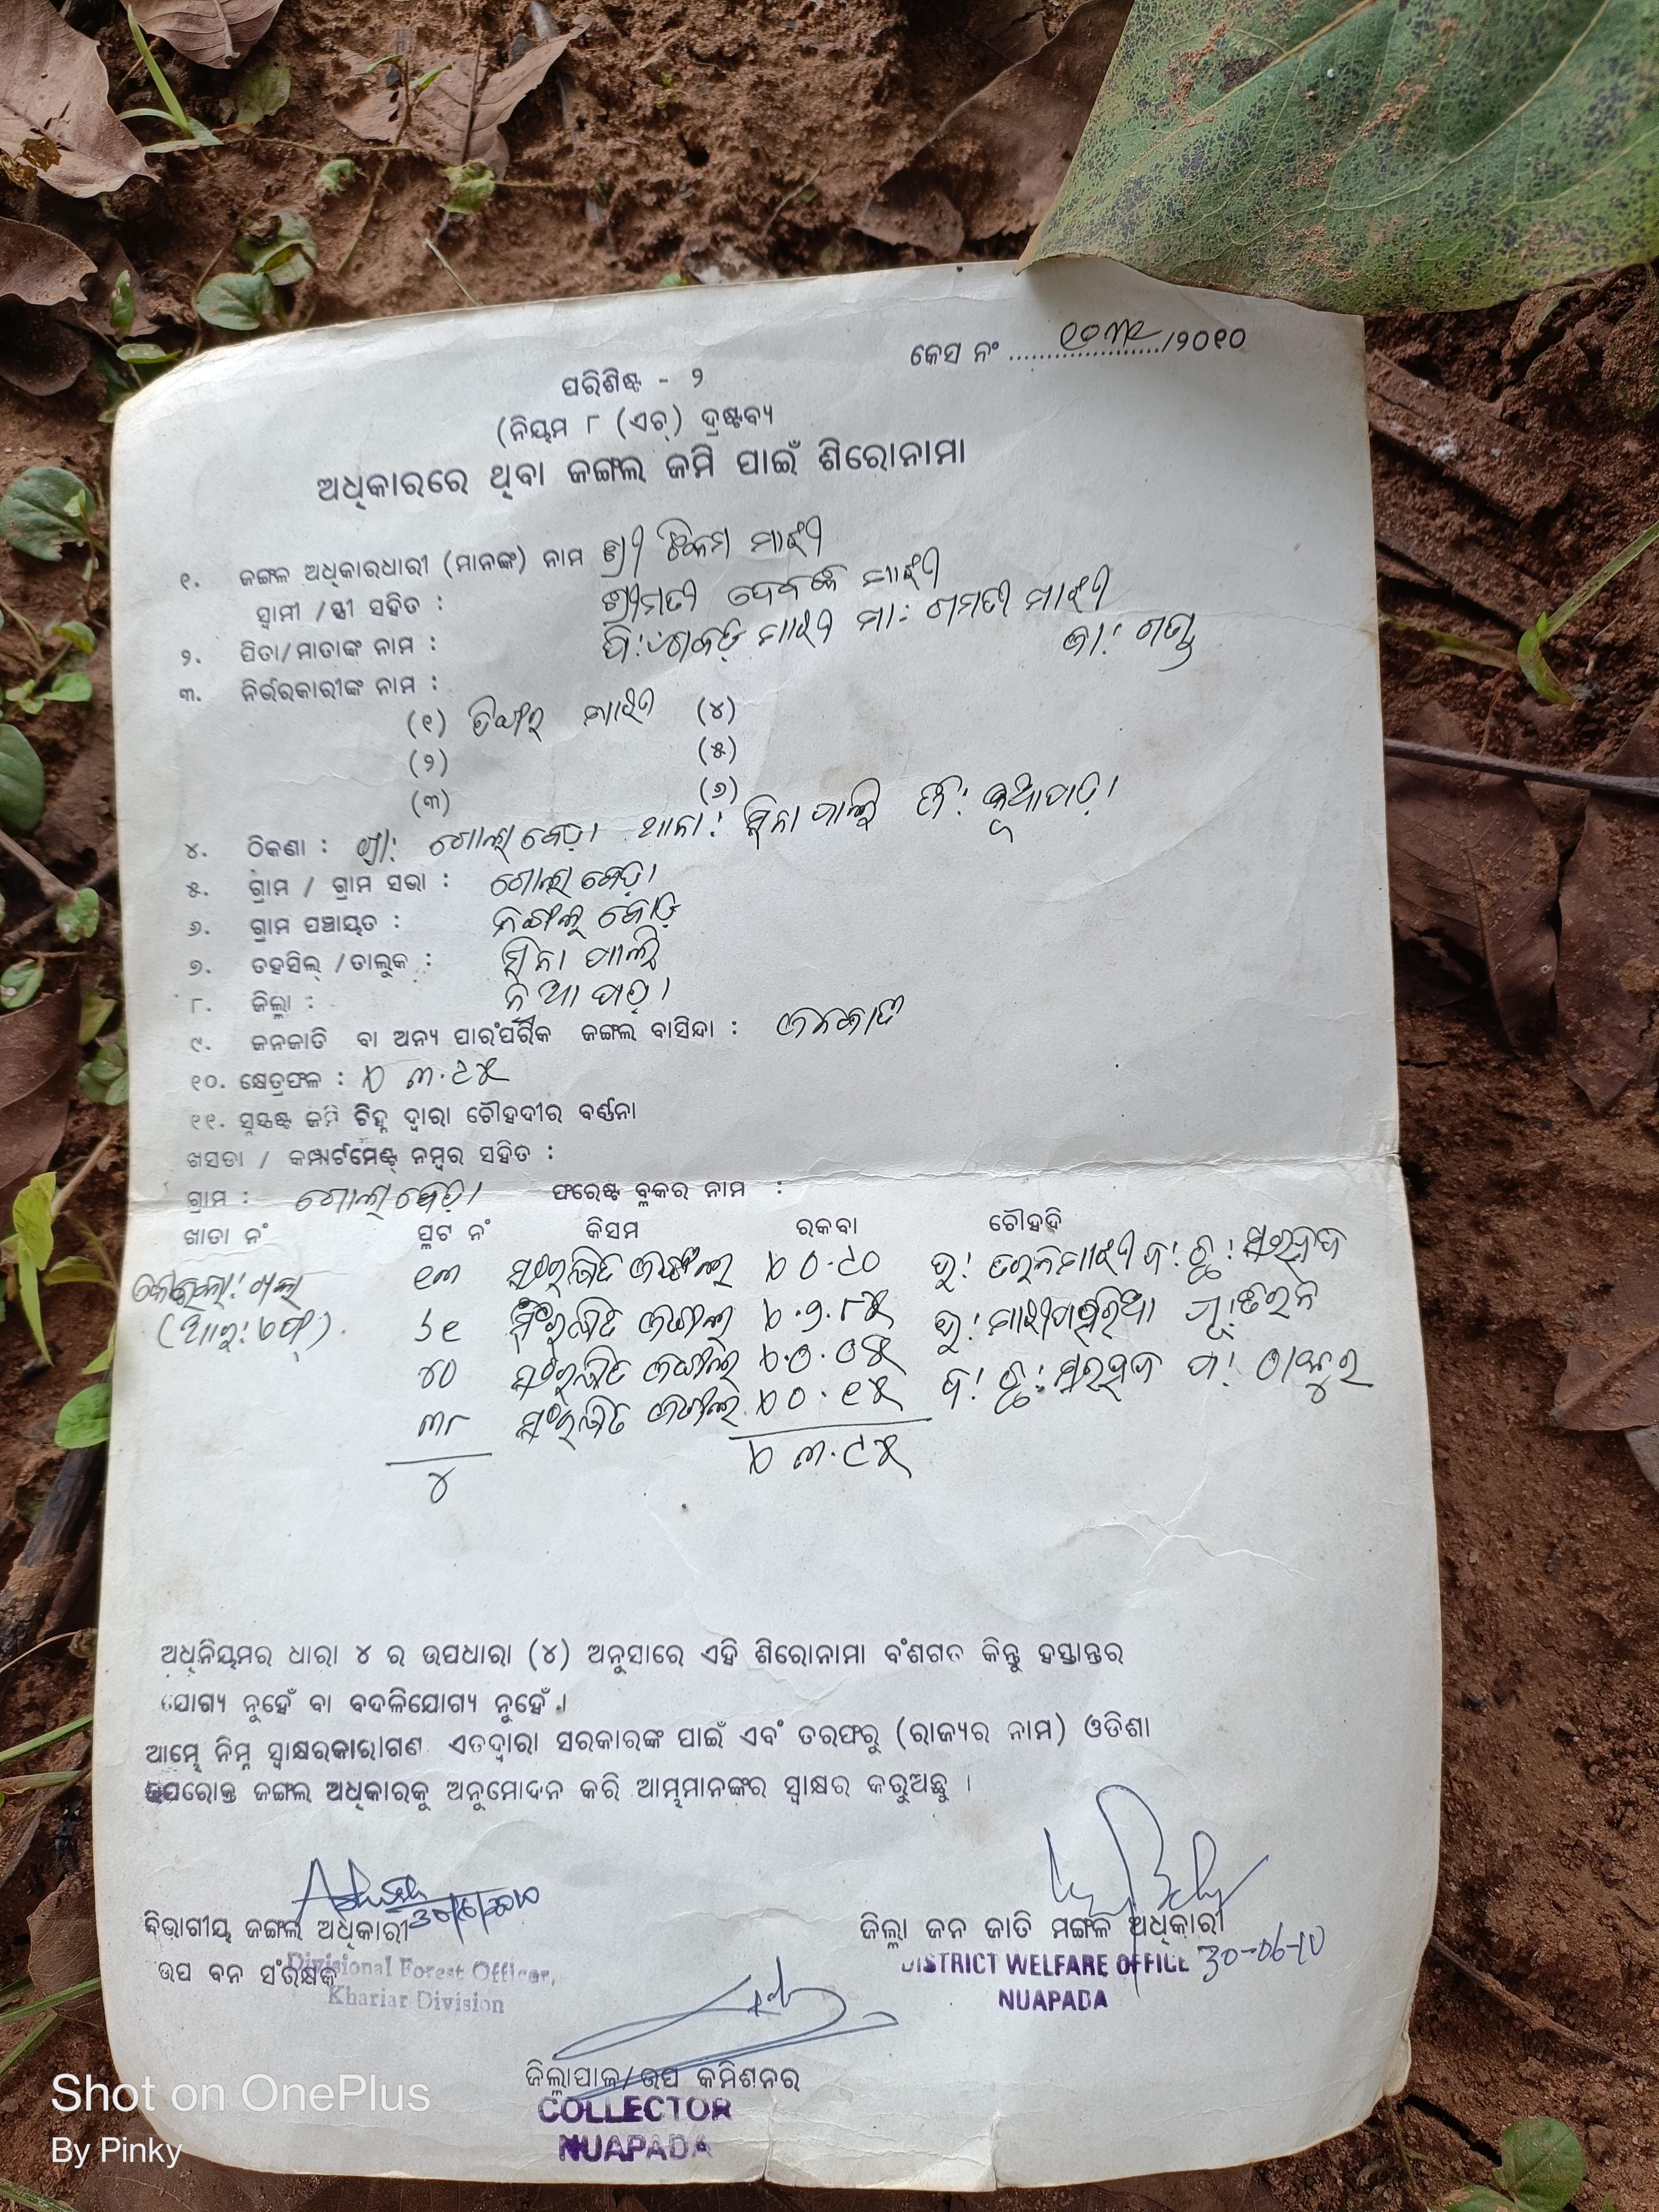 କେସ ନଂ ..................../୨୦୧୦
ପରିଶିଷ୍ଟ - ୨
(ନିୟମ ୮ (ଏଚ୍) ଦ୍ରଷ୍ଟବ୍ୟ
ଅଧିକାରରେ ଥିବା ଜଙ୍ଗଲ ଜମି ପାଇଁ ଶିରୋନାମା
୧. ଜଙ୍ଗଲ ଅଧିକାରଧାରୀ (ମାନଙ୍କ) ନାମ ଶ୍ରୀ ଟିକମ ମାଝୀ
ସ୍ୱାମୀ /ସ୍ତ୍ରୀ ସହିତ : ଶ୍ରୀମତୀ ମାଝୀ
୨. ପିତା/ମାତାଙ୍କ ନାମ : ପି: ମାଝୀ ମା: ମାଝୀ
ଜା: ଗଣ୍ଡ
୩. ନିର୍ଭରକାରୀଙ୍କ ନାମ :
(୧) ମାଝୀ (୪)
(୨) (୫)
(୩) (୬)
୪. ଠିକଣା : ଗ୍ରା: ଗୋଲାବେଡ଼ା ଥାନା: ସିନାପାଲି ଜି: ନୂଆପଡ଼ା
୫. ଗ୍ରାମ / ଗ୍ରାମ ସଭା : ଗୋଲାବେଡ଼ା
୬. ଗ୍ରାମ ପଞ୍ଚାୟତ :
୭. ତହସିଲ୍ /ତାଲୁକ : ସିନାପାଲି
୮. ଜିଲ୍ଲା : ନୂଆପଡ଼ା
୯. ଜନଜାତି ବା ଅନ୍ୟ ପାରଂପରିକ ଜଙ୍ଗଲ ବାସିନ୍ଦା : ଜନଜାତି
୧୦. କ୍ଷେତ୍ରଫଳ : ୩.୯୫
୧୧. ସୁସ୍ପଷ୍ଟ ଜମି ଚିହ୍ନ ଦ୍ୱାରା ଚୌହଦୀର ବର୍ଣ୍ଣନା
ଖସଡା / କମ୍ପାର୍ଟମେଣ୍ଟ୍ ନମ୍ବର ସହିତ :
ଗ୍ରାମ : ଗୋଲାବେଡ଼ା ଫରେଷ୍ଟ ବ୍ଲକର ନାମ :
ଖାତା ନଂ ପ୍ଲଟ ନଂ କିସମ ରକବା ଚୌହଦି
୧୩ ସଂରକ୍ଷିତ ଜଙ୍ଗଲ ୦.୯୦
ସଂରକ୍ଷିତ ଜଙ୍ଗଲ ୨.୮୫
୪୦ ସଂରକ୍ଷିତ ଜଙ୍ଗଲ ୦.୦୫
୩୮ ସଂରକ୍ଷିତ ଜଙ୍ଗଲ ୦.୧୫
୪ ୩.୯୫
ଅଧିନିୟମର ଧାରା ୪ ର ଉପଧାରା (୪) ଅନୁସାରେ ଏହି ଶିରୋନାମା ବଂଶଗତ କିନ୍ତୁ ହସ୍ତାନ୍ତର
ଯୋଗ୍ୟ ନୁହେଁ ବା ବଦଳିଯୋଗ୍ୟ ନୁହେଁ ।
ଆମ୍ଭେ ନିମ୍ନ ସ୍ୱାକ୍ଷରକାରୀଗଣ ଏତଦ୍ୱାରା ସରକାରଙ୍କ ପାଇଁ ଏବଂ ତରଫରୁ (ରାଜ୍ୟର ନାମ) ଓଡିଶା
ଉପରୋକ୍ତ ଜଙ୍ଗଲ ଅଧିକାରକୁ ଅନୁମୋଦନ କରି ଆମ୍ଭମାନଙ୍କର ସ୍ୱାକ୍ଷର କରୁଅଛୁ ।
30/6/2010
ବିଭାଗୀୟ ଜଙ୍ଗଲ ଅଧିକାରୀ ଜିଲ୍ଲା ଜନ ଜାତି ମଙ୍ଗଳ ଅଧିକାରୀ
ଉପ ବନ ସଂରକ୍ଷକ Divisional Forest Officer, DISTRICT WELFARE OFFICE 30-06-10
Khariar Division NUAPADA
ଜିଲ୍ଲାପାଳ/ଉପ କମିଶନର
COLLECTOR
NUAPADA
Shot on OnePlus
By Pinky